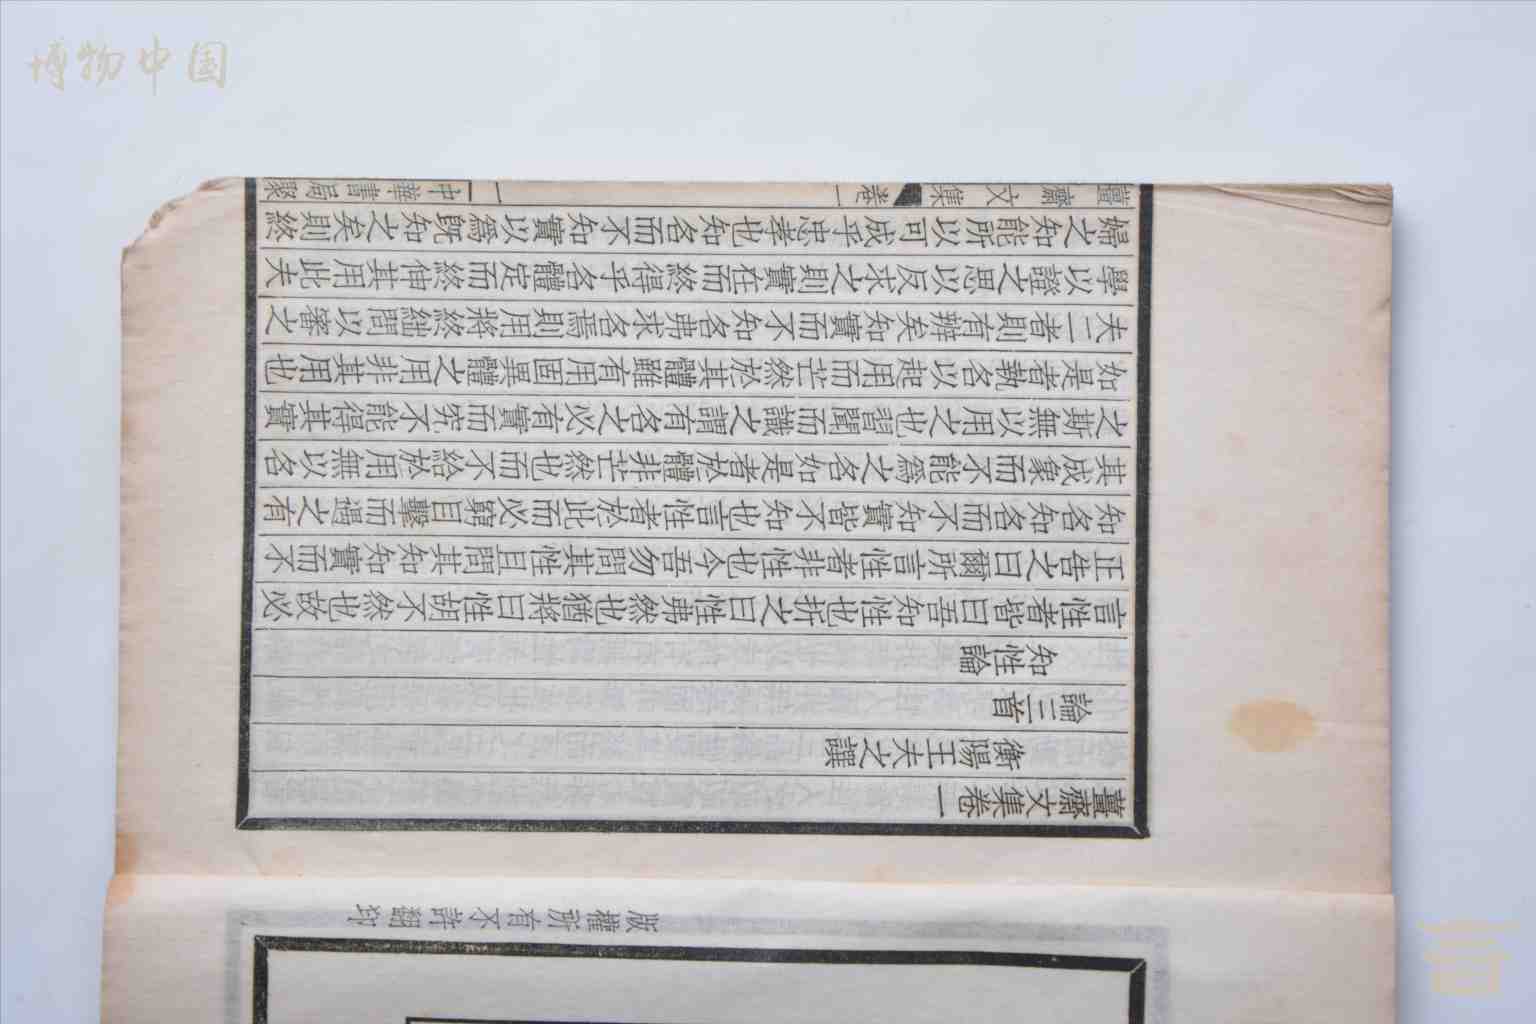 博物中国
薑齋文集卷一
衡陽王夫之譔
論三首
知性論
言性者皆曰吾知性也折之曰性弗然也猶將曰性胡不然也故必
正告之曰爾所言性者非性也今吾勿問其性且問其知知實而不
知名知名而不知實皆不知也言性者於此而必窮目擊而遇之有
其成象而不能爲之名如是者於體非茫然也而不給於用無以名
之斯無以用之也習聞而識之謂有名之必有實而究不能得其實
如是者執名以起用而茫然於其體雖有用固異體之用非其用也
夫二者則有辨矣知實而不知名弗求名焉則用將終絀問以審之
學以證之思以反求之則實在而終得乎名體定而終伸其用此夫
婦之知能所以可成乎忠孝也知名而不知實以爲既知之矣則終
薑齋文集 卷一 一 中華書局聚
版權所有不許翻印